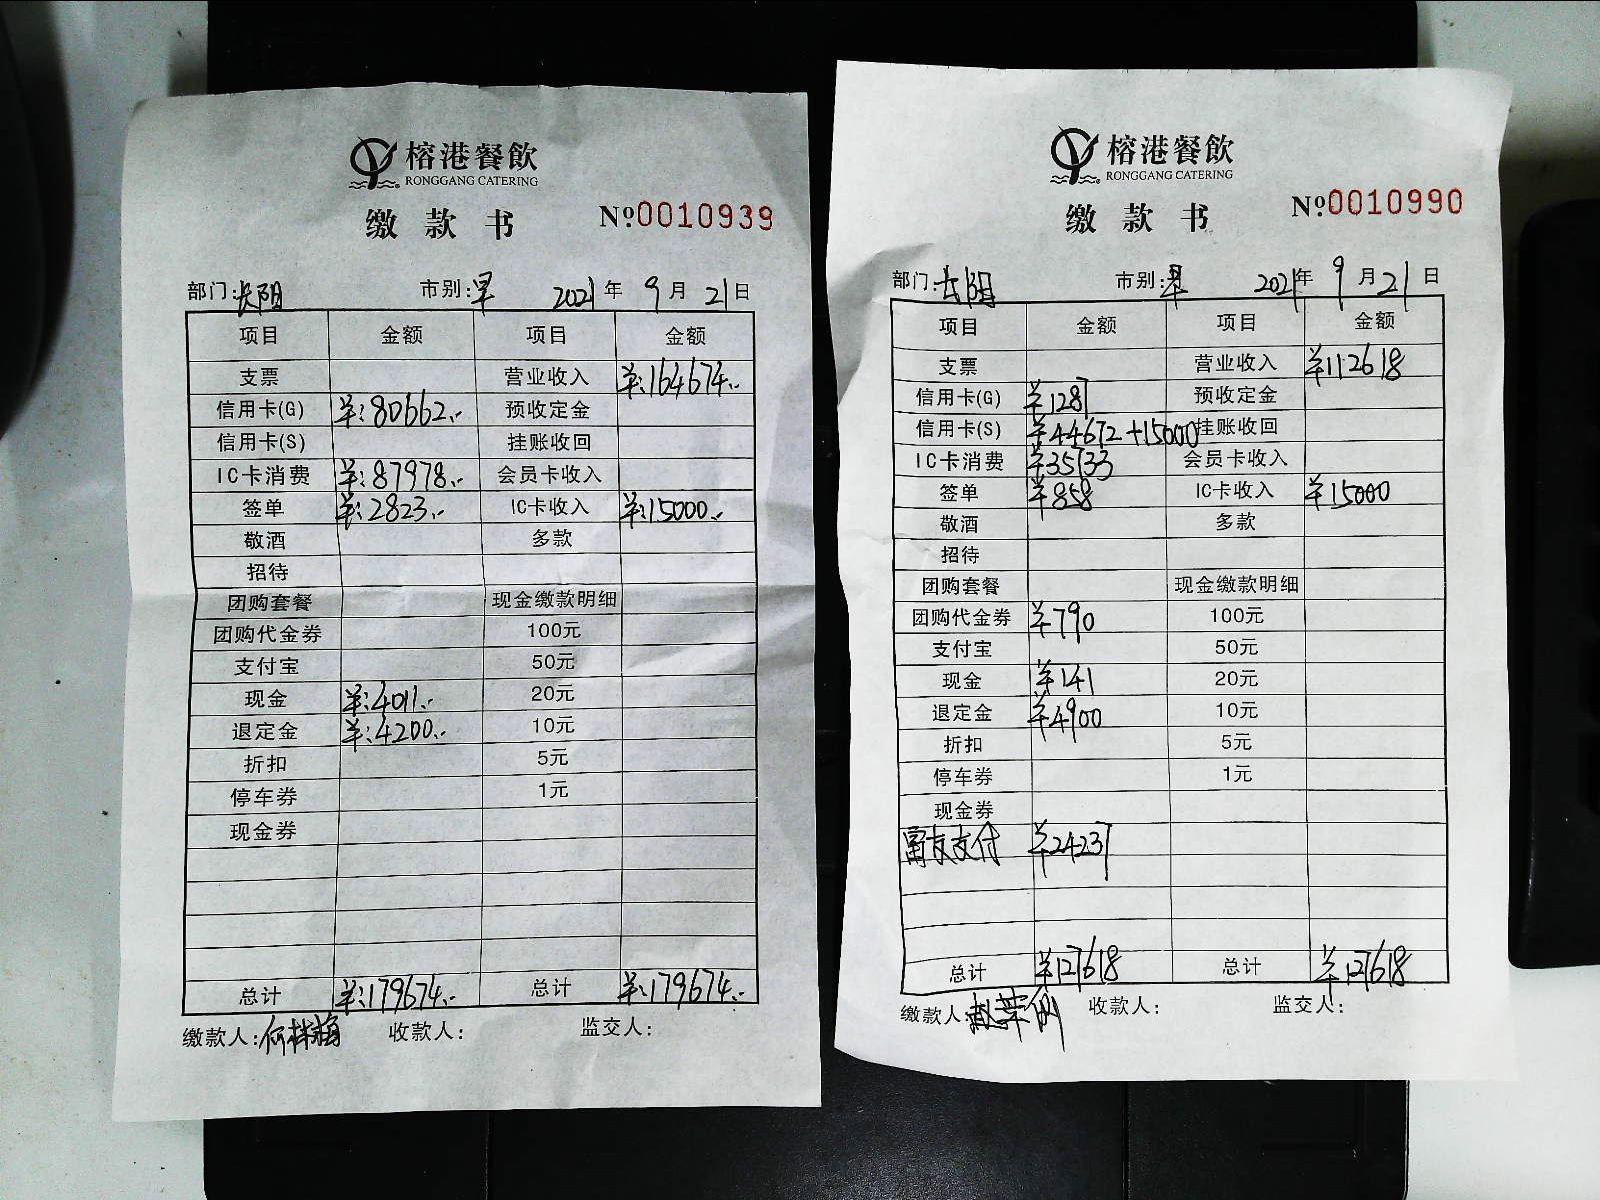 榕港餐飲
RONGGANG CATERING
缴款书 №0010939
部门:长阳 市别:早 2021年9月21日
项目 金额 项目 金额
支票 营业收入 ¥:164674.-
信用卡(G) ¥:80662.- 预收定金
信用卡(S) 挂账收回
IC卡消费 ¥:87978.- 会员卡收入
签单 ¥:2823.- IC卡收入 ¥:15000.-
敬酒 多款
招待
团购套餐 现金缴款明细
团购代金券 100元
支付宝 50元
现金 ¥:4011.- 20元
退定金 ¥:4200.- 10元
折扣 5元
停车券 1元
现金券
总计 ¥:179674.- 总计 ¥:179674.-
缴款人:何林梅 收款人: 监交人:
榕港餐飲
RONGGANG CATERING
缴款书 №0010990
部门:长阳 市别:早 2021年9月21日
项目 金额 项目 金额
支票 营业收入 ¥112618
信用卡(G) ¥1287 预收定金
信用卡(S) ¥44672+15000 挂账收回
IC卡消费 ¥35733 会员卡收入
签单 ¥858 IC卡收入 ¥15000
敬酒 多款
招待
团购套餐 现金缴款明细
团购代金券 ¥790 100元
支付宝 50元
现金 ¥141 20元
退定金 ¥4900 10元
折扣 5元
停车券 1元
现金券
富友支付 ¥24237
总计 ¥127618 总计 ¥127618
缴款人: 收款人: 监交人: